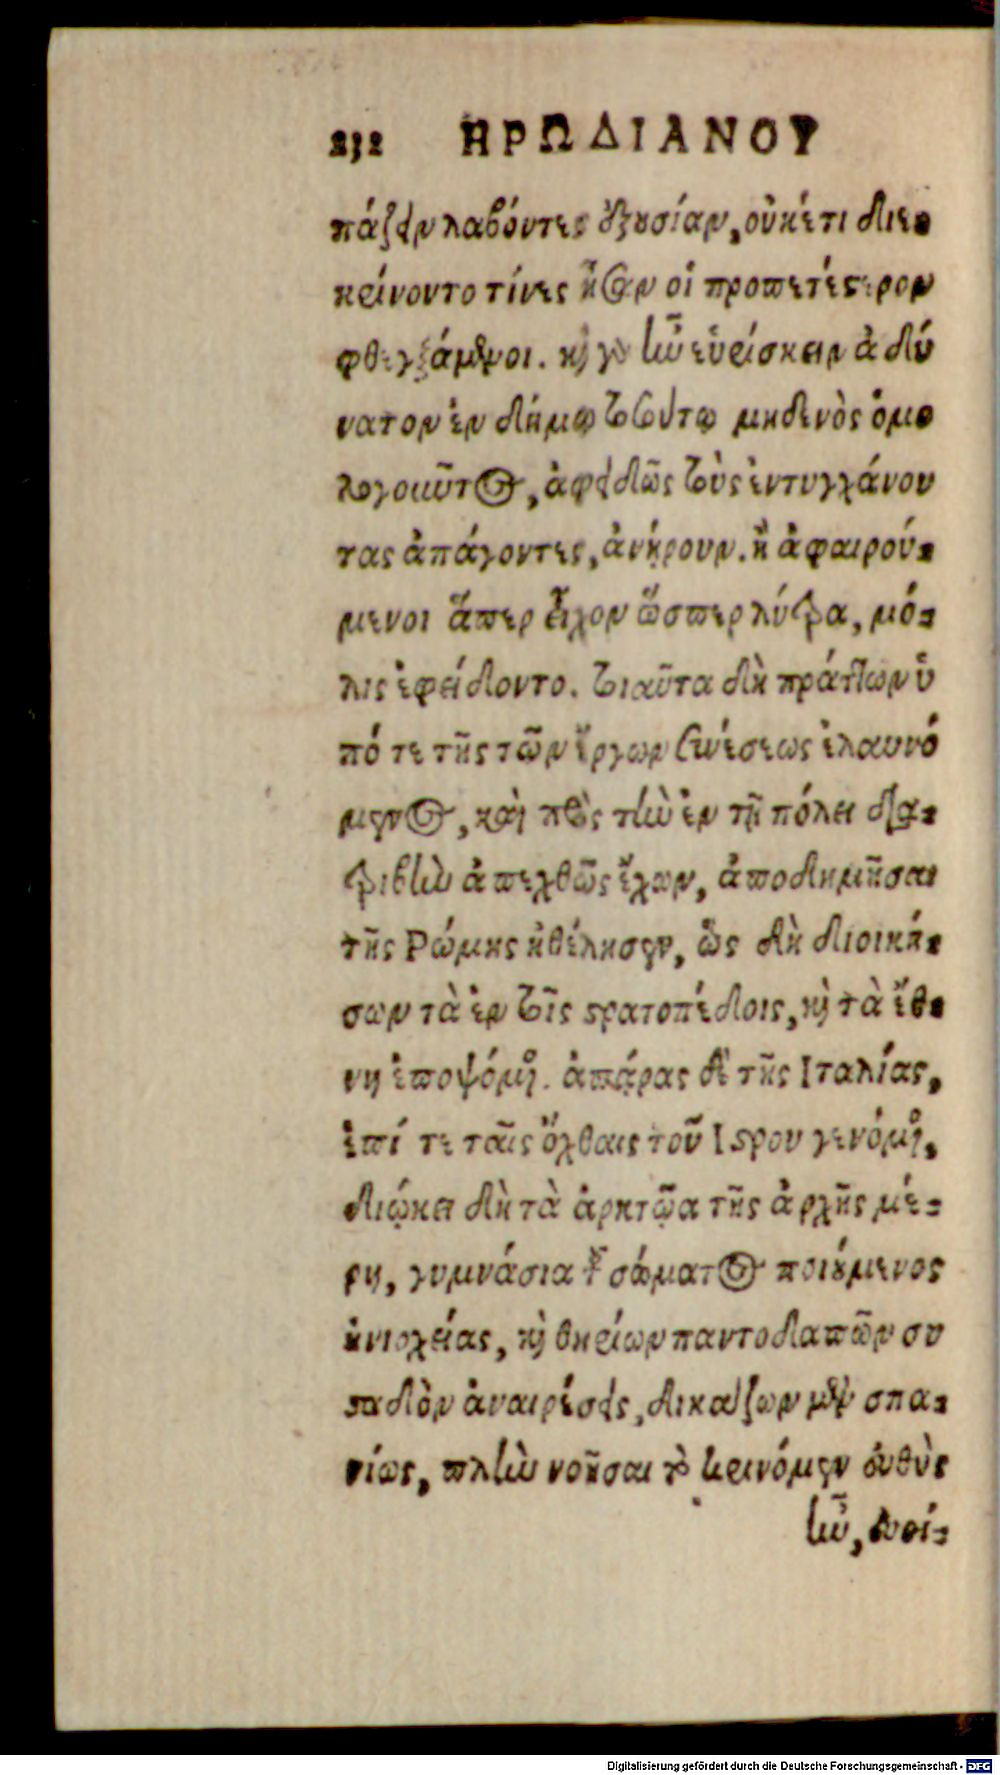 232 ΗΡΩΔΙΑΝΟΥ
πάζειν λαβόντες ἐξουσίαν, οὐκέτι διε-
κρίνοντο τίνες ἦσαν οἱ προπετέστερον
φθεγξάμενοι. καὶ γὰρ ἦν εὑρίσκειν ἀδύ
νατον ἐν δήμῳ τοσούτῳ μηδενὸς ὁμο
λογοῦντος, ἀφειδῶς τοὺς ἐντυγχάνον
τας ἀπάγοντες, ἀνῄρουν. ἢ ἀφαιρού-
μενοι ἅπερ εἶχον ὥσπερ λύτρα, μό-
λις ἐφείδοντο. τοιαῦτα δὴ πράττων ὑ
πό τε τῆς τῶν ἔργων συνέσεως ἐλαυνό
μενος, καὶ πρὸς τὴν ἐν τῇ πόλει δια-
τριβὴν ἀπεχθῶς ἔχων, ἀποδημῆσαι
τῆς Ρώμης ἠθέλησεν, ὡς δὴ διοική-
σων τὰ ἐν τοῖς στρατοπέδοις, καὶ τὰ ἔθ-
νη ἐποψόμενος. ἀπάρας δὲ τῆς Ιταλίας,
ἐπί τε ταῖς ὄχθαις τοῦ Ιστρου γενόμενος,
διῴκει δὴ τὰ ἀρκτῷα τῆς ἀρχῆς μέ-
ρη, γυμνάσια τοῦ σώματος ποιούμενος
ἡνιοχείας, καὶ θηρίων παντοδαπῶν συ
σταδὸν ἀναιρέσεις, δικάζων μὲν σπα-
νίως, πλὴν νοῆσαι τὸ κρινόμενον εὐθὺς
ἦν, εὐθί-
Digitalisierung gefördert durch die Deutsche Forschungsgemeinschaft - DFG